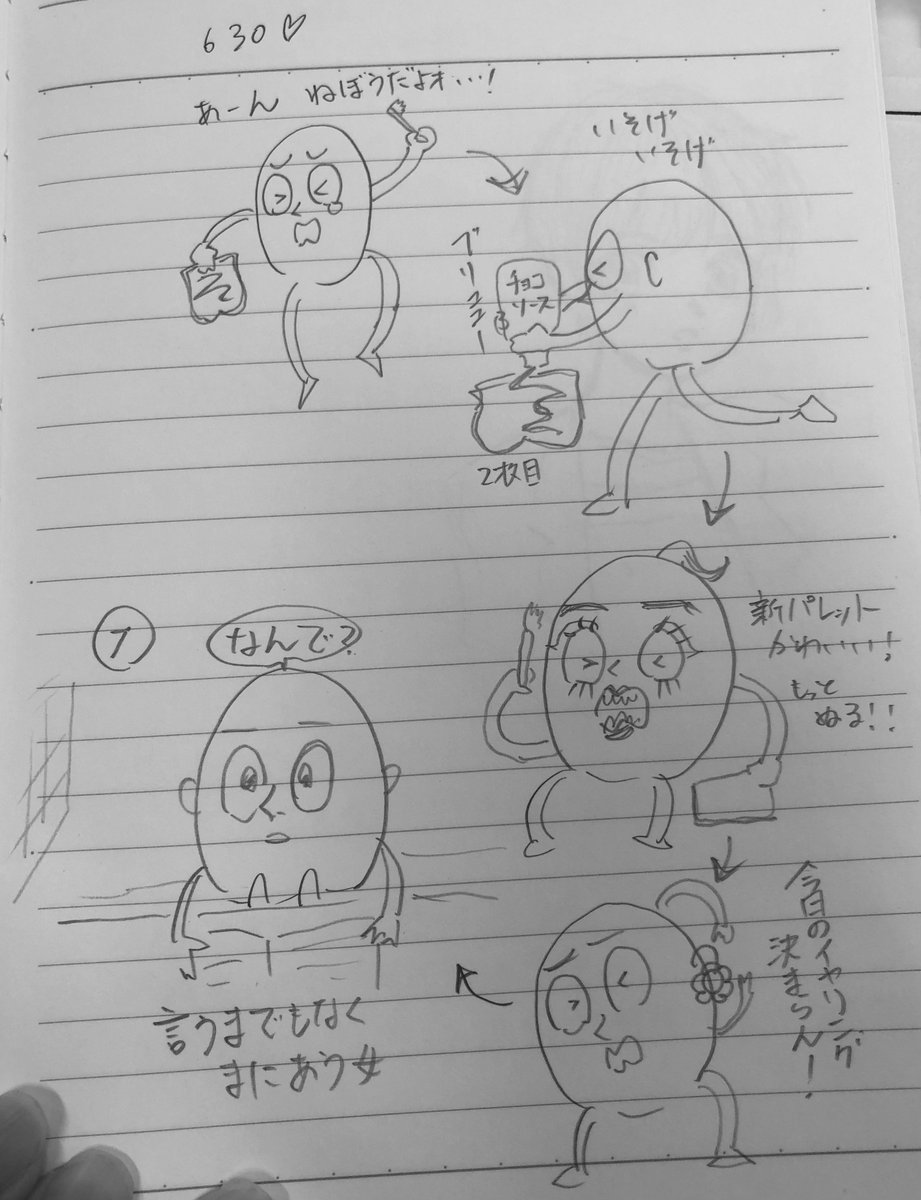 630♡
あーん ねぼうだよオ…!
いそげ
いそげ
ブリュュー
チョコ
ソース
2枚目
新パレット
かわいいい!
もっと
ぬる!!
今日のイヤリング
決まらん!
7
なんで?
言うまでもなく
まにあう女